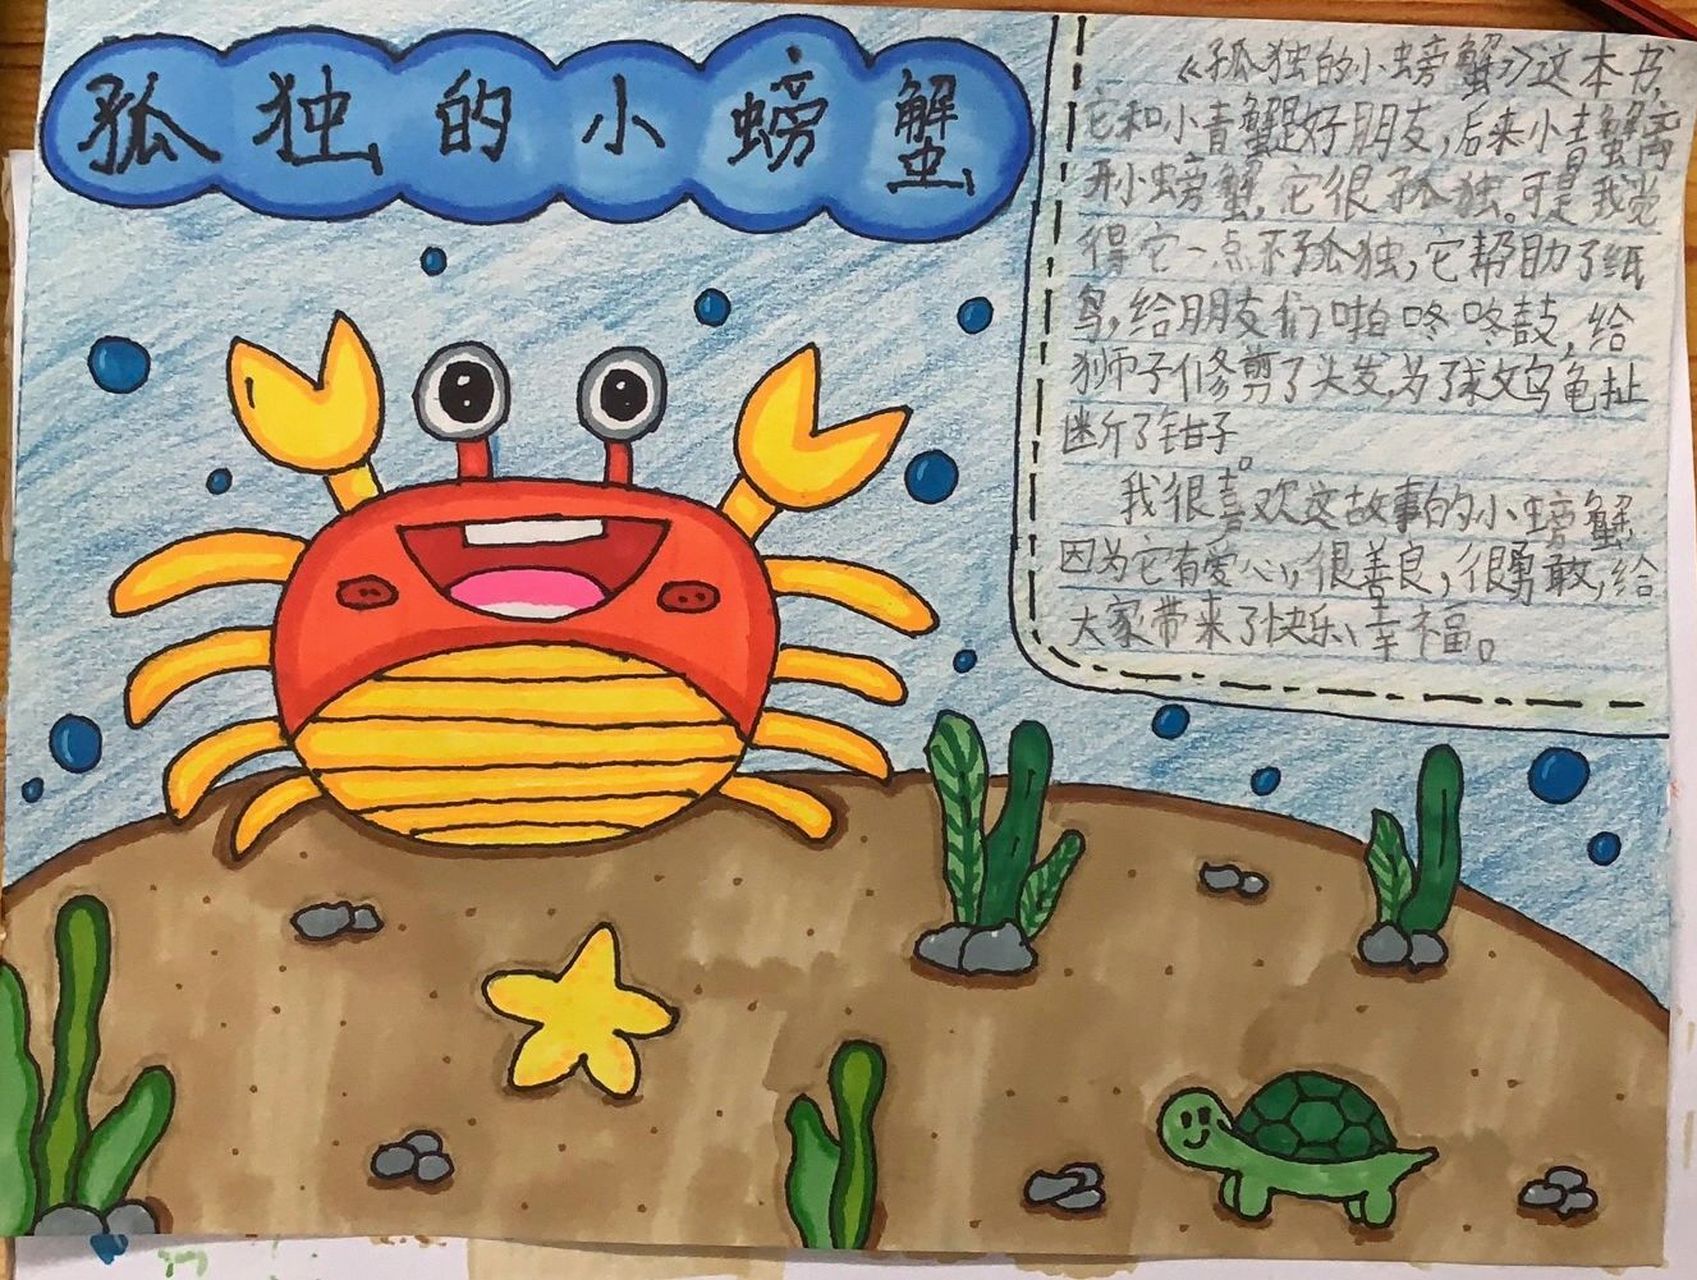 孤独的小螃蟹
《孤独的小螃蟹》这本书,
它和小青蟹是好朋友,后来小青蟹离
开小螃蟹,它很孤独。可是我觉
得它一点不孤独,它帮助了纸
鸟,给朋友们啪咚咚鼓,给
狮子修剪了头发,为了救乌龟扯
断了钳子。
我很喜欢这故事的小螃蟹,
因为它有爱心,很善良,很勇敢,给
大家带来了快乐、幸福。